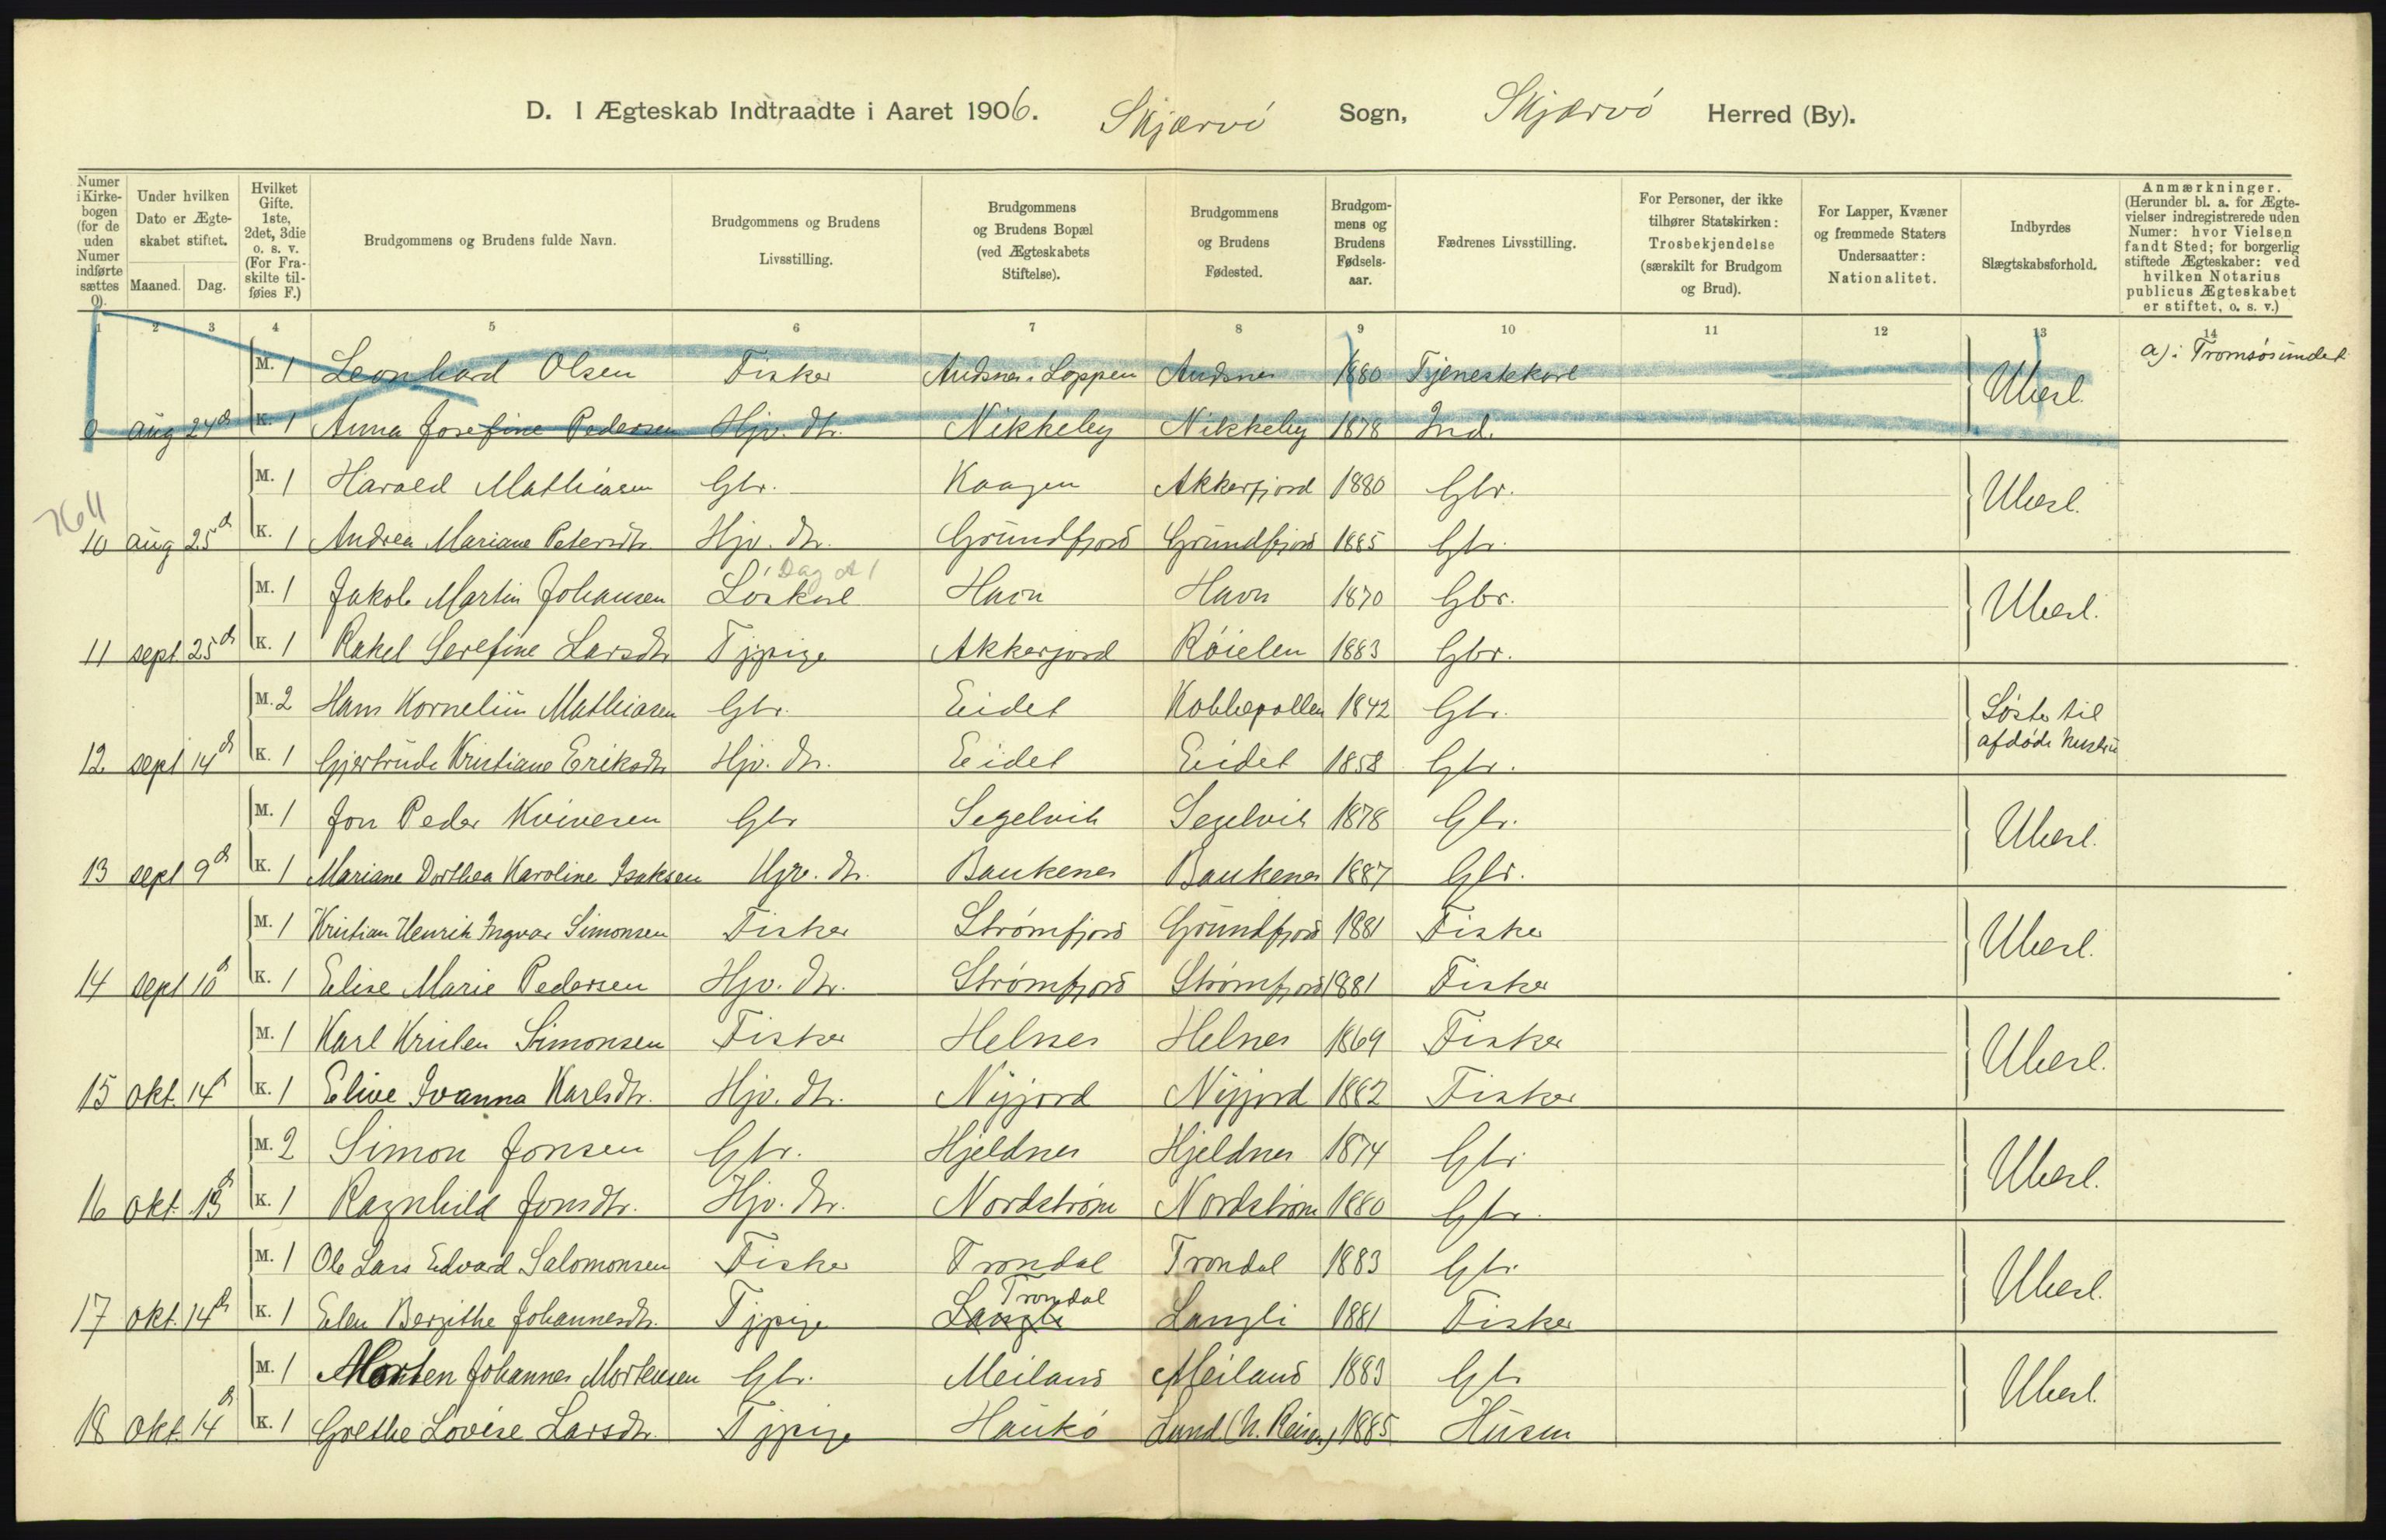 D. I Ægteskab Indtraadte i Aaret 1906. Skjærvö Sogn, Skjærvö Herred (By).
Numer i Kirkebogen (for de uden Numer indførte sættes 0).
Under hvilken Dato er Ægteskabet stiftet.
Maaned. Dag.
Hvilket Gifte. 1ste, 2det, 3die o. s. v. (For Fraskilte tilføies F.)
Brudgommens og Brudens fulde Navn.
Brudgommens og Brudens Livsstilling.
Brudgommens og Brudens Bopæl (ved Ægteskabets Stiftelse).
Brudgommens og Brudens Fødested.
Brudgommens og Brudens Fødselsaar.
Fædrenes Livsstilling.
For Personer, der ikke tilhører Statskirken: Trosbekjendelse (særskilt for Brudgom og Brud).
For Lapper, Kvæner og fremmede Staters Undersaatter: Nationalitet.
Indbyrdes Slægtskabsforhold.
Anmærkninger. (Herunder bl. a. for Ægtevielser indregistrerede uden Numer: hvor Vielsen fandt Sted; for borgerlig stiftede Ægteskaber: ved hvilken Notarius publicus Ægteskabet er stiftet, o. s. v.)
1 2 3 4 5 6 7 8 9 10 11 12 13 14
M. 1 Leonhard Olsen Fisker Andsnes i Loppen Andsnes 1880 Tjenestekarl Ubesl. a) i Tromsösundet
0 aug 24d K. 1 Anna Josefine Pedersen Hjv. dtr. Nikkeby Nikkeby 1878 Ind.
M. 1 Harald Mathiasen Gbr. Kaagen Akkerfjord 1880 Gbr. Ubesl.
10 aug 25d K. 1 Andrea Mariane Petersdtr. Hjv. dtr. Grundfjord Grundfjord 1885 Gbr.
M. 1 Jakob Martin Johansen Löskarl Havn Havn 1870 Gbr. Ubesl.
11 sept 25d K. 1 Rakel Serefine Larsdtr Tjpige Akkerjord Röielen 1883 Gbr.
M. 2 Hans Kornelius Mathiasen Gbr. Eidet Kobbepollen 1842 Gbr. Söster til
12 sept 14d K. 1 Gjertrude Kristiane Eriksdtr Hjv. dtr. Eidet Eidet 1858 Gbr. afdöde hustru
M. 1 Jon Peder Kvivesen Gbr Segelvik Segelvik 1878 Gbr. Ubesl.
13 sept 9d K. 1 Mariane Dorthea Karoline Isaksen Hjv. dtr. Baukenes Baukenes 1887 Gbr.
M. 1 Kristian Henrik Ingvar Simonsen Fisker Strømfjord Grundfjord 1881 Fisker Ubesl.
14 sept 10d K. 1 Elise Marie Pedersen Hjv. dtr. Strømfjord Strømfjord 1881 Fisker
M. 1 Karl Kristen Simonsen Fisker Helnes Helnes 1869 Fisker Ubesl.
15 okt. 14d K. 1 Elive Ivanna Karlsdtr. Hjv. dtr. Nyjord Nyjord 1882 Fisker
M. 2 Simon Jonsen Gbr. Hjeldnes Hjeldnes 1874 Gbr Ubesl.
16 okt. K. 1 Ragnhild Jonsdtr. Hjv. dtr. Nordstrøm Nordstrøm 1880 Gbr.
M. 1 Ole Lars Edvard Salomonsen Fisker Trondal Trondal 1883 Gbr Ubesl.
Trondal
17 okt. 14d K. 1 Elen Bergithe Johannesdtr. Tjpige Langli Langli 1881 Fisker
M. 1 Morten Johannes Mortensen Gbr. Meiland Meiland 1883 Gbr Ubesl.
18 okt. 14d K. 1 Grethe Lovise Larsdtr. Tjpige Haukö Lund (N. Reisen) 1885 Husm